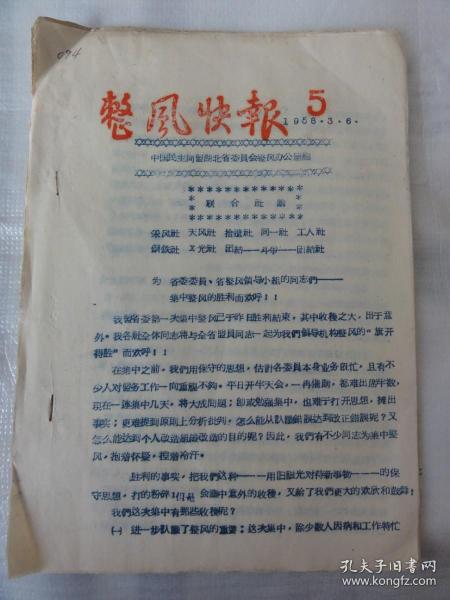 074
整風快報 5
1958.3.6.
中国民主同盟湖北省委員会整风办公室編
联合社論
采风社 天风社 拾遺社 同一社 工人社
鋼鉄社 X光社 团結——斗爭——团結社
为省委委員、省整风領导小組的同志們——
集中整风的胜利而欢呼!!
我盟省委第一次集中整风已于昨日胜利結束,其中收穫之大,出于意
外。我各社全体同志将与全省盟員同志一起为我們領导机构整风的“旗开
得胜”而欢呼!!
在集中之前,我們用保守的思想,估計各委員本身业务很忙,且有不
少人对盟务工作一向重視不夠,平日开半天会,一再催請,都难出席半数,
現在一連集中几天,将大成問題;即或勉强集中,也难于打开思想,摊出
事实;更难提到原則上分析批判,怎么能从認識錯誤达到改正錯誤呢?又
怎么能达到个人改造組織改造的目的呢?因此,我們有不少同志为集中整
风,抱着怀疑,捏着冷汗。
胜利的事实,把我們这种——用旧眼光对待新事物——的保
守思想,打的粉碎!但是会議中意外的收穫,又給了我們更大的欢欣和鼓舞!
我們这次集中有那些收穫呢?
(一) 进一步認識了整风的重要:这次集中,除少数人因病和工作特忙
孔夫子旧书网
www.kongfz.com